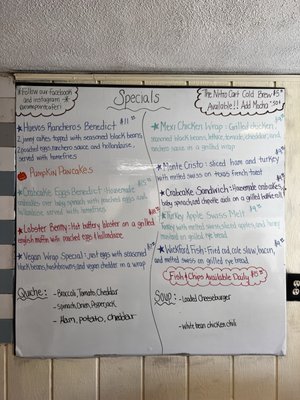 Follow our Facebook
and instagram
Specials
The Nitro Cart Cold Brew $5
Available!! Add Mocha
Huevos Rancheros Benedict $11
2 jonny cakes topped with seasoned black beans,
2 poached eggs, ranchero sauce and hollandaise,
served with homefries
Pumpkin Pancakes
Crabcake Eggs Benedict - Homemade
crabcakes over baby spinach with poached eggs and
hollandaise, served with homefries
Lobster Benny: Hot buttery lobster on a grilled
english muffin with poached eggs & hollandaise
Vegan Wrap Special: Just eggs with seasoned
black beans, hashbrowns and vegan cheddar in a wrap
Quiche:
- Broccoli, Tomato, Cheddar
- Spinach, Onion, Pepperjack
- Ham, potato, cheddar
Mexi Chicken Wrap: Grilled chicken,
seasoned black beans, lettuce, tomato, cheddar, and
ranchero sauce in a grilled wrap
Monte Cristo: sliced ham and turkey
with melted swiss on texas french toast
Crabcake Sandwich: Homemade crabcakes,
baby spinach, and chipotle aioli on a grilled
Turkey Apple Swiss Melt
Turkey with melted swiss, sliced apples, and honey
mustard on grilled rye bread
Wickford Fish: Fried cod, cole slaw, bacon,
and melted swiss on grilled rye bread
Fish & Chips Available Daily
Soup:
- Loaded Cheeseburger
- White bean chicken chili